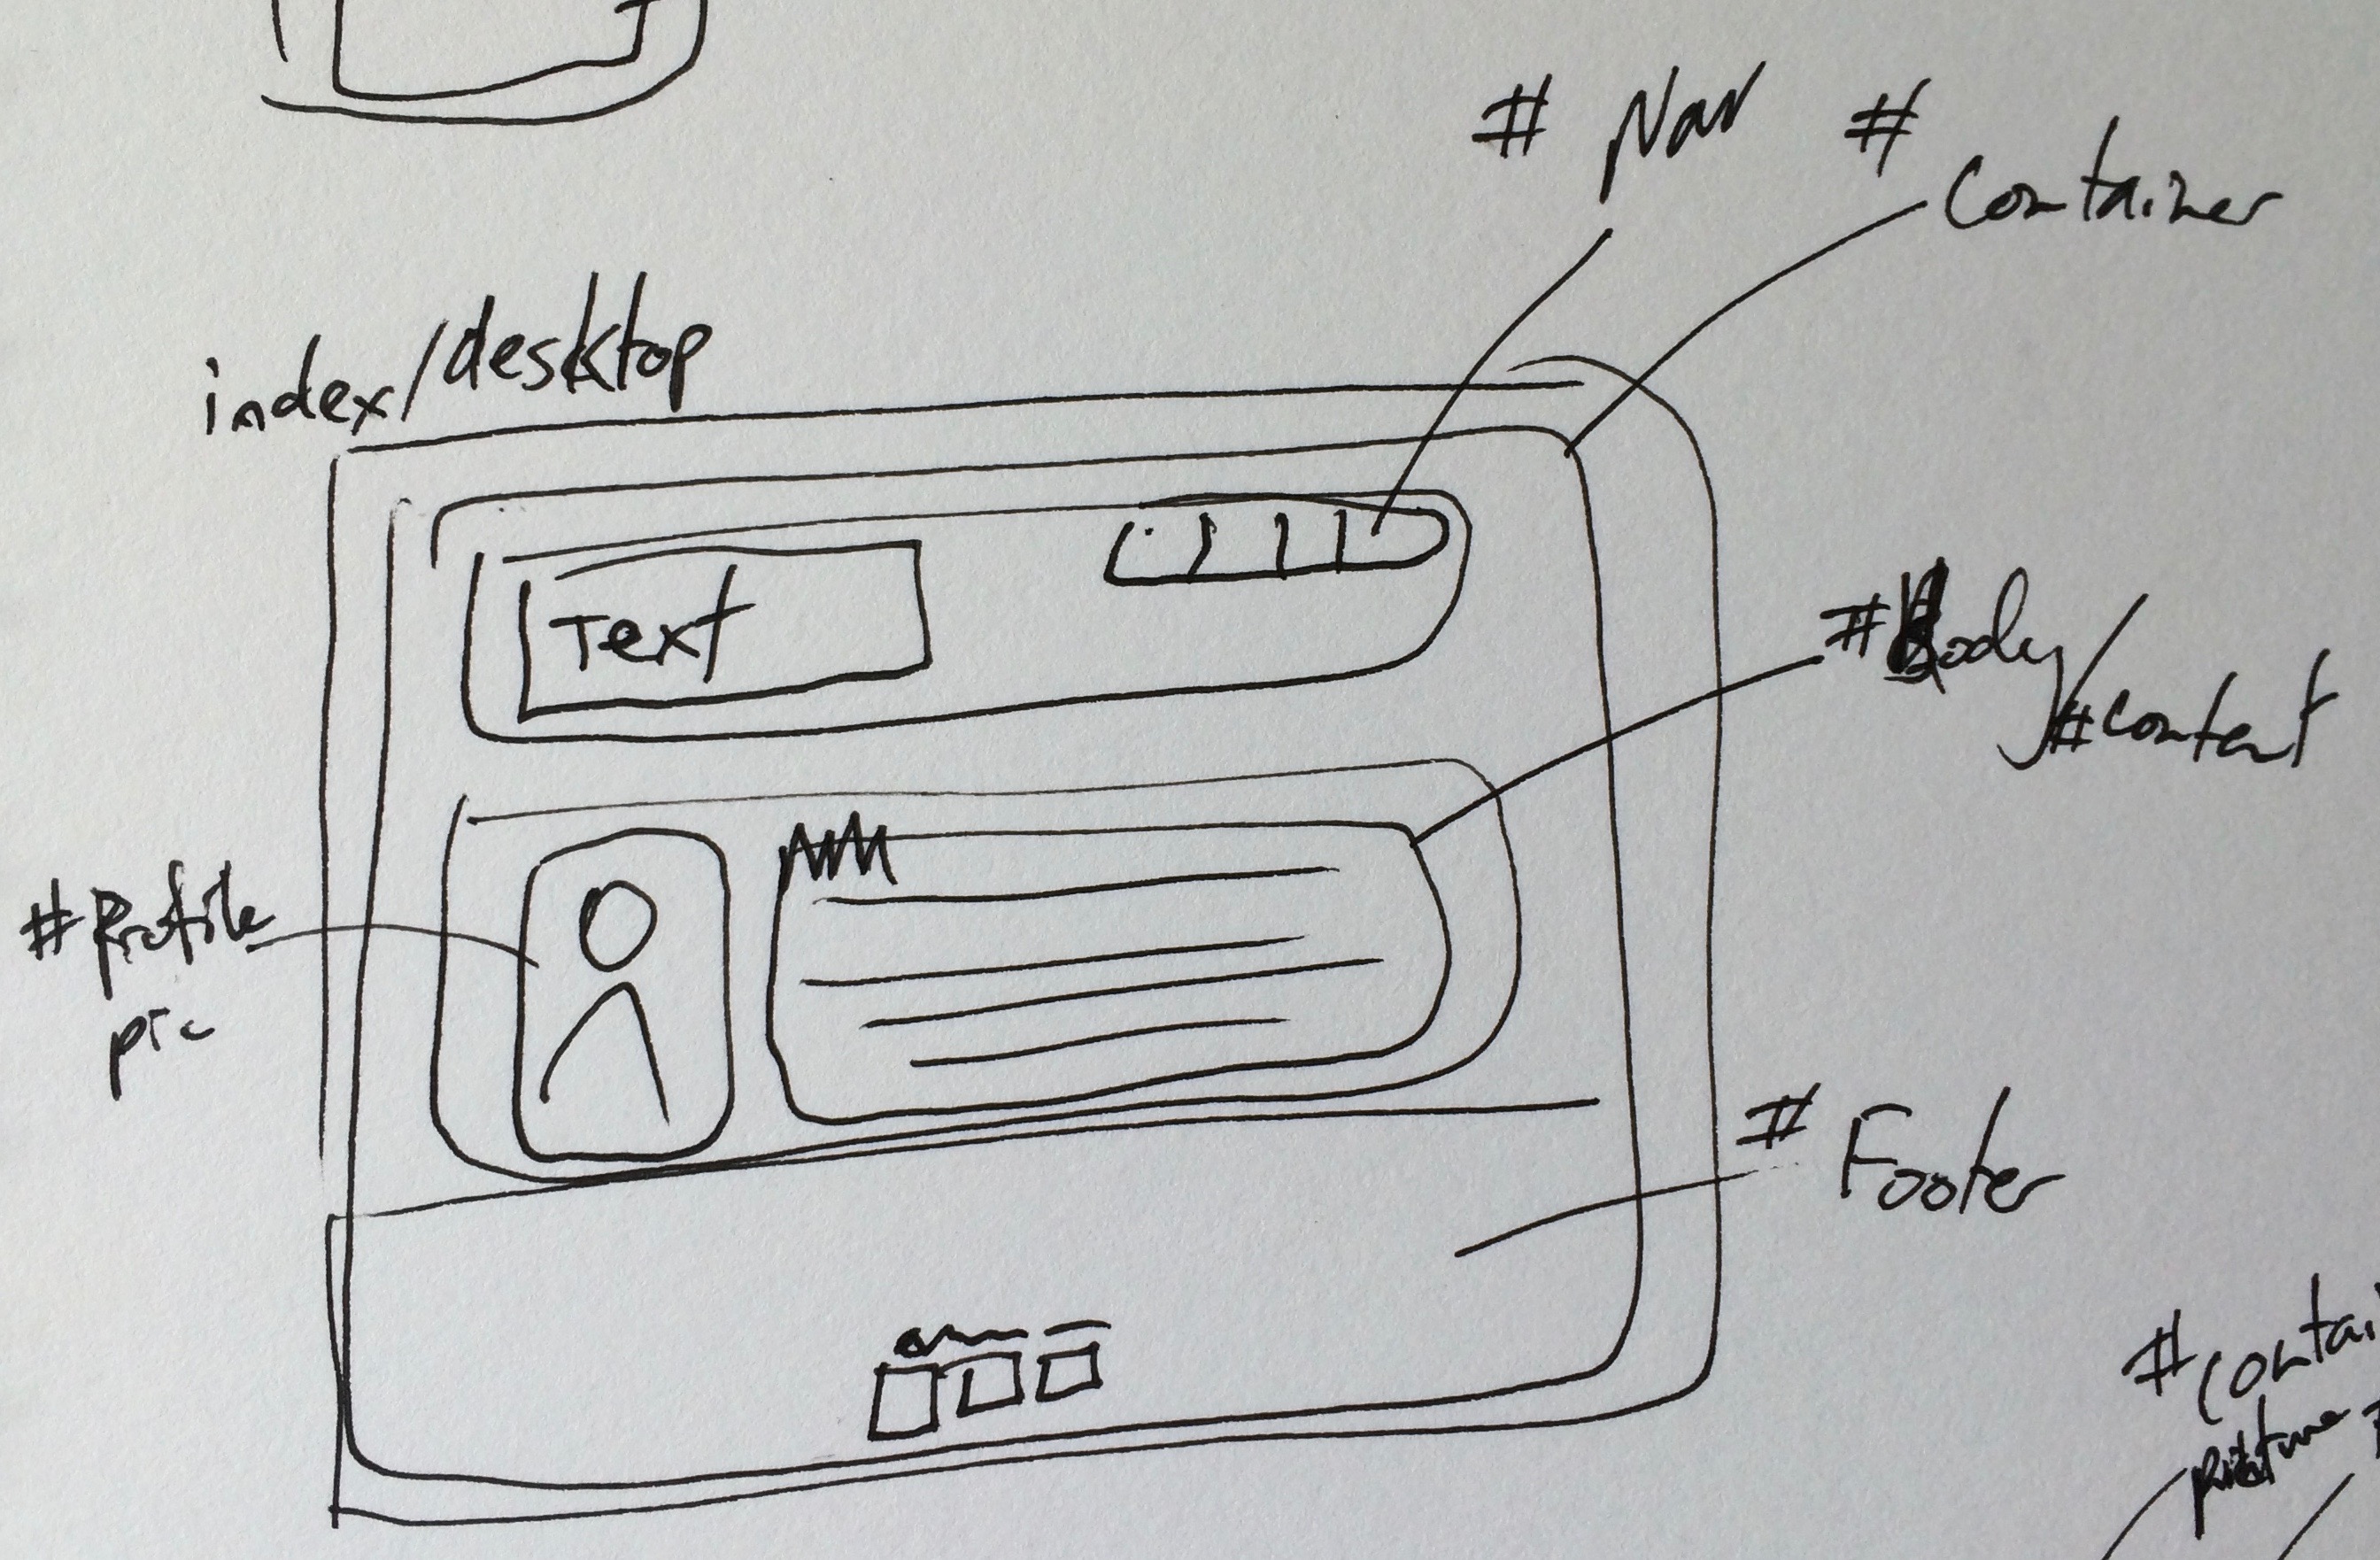 # Nav
#
Container
index/desktop
Text
#Body/
#content
#Profile
pic
#
Footer
#contai
picture